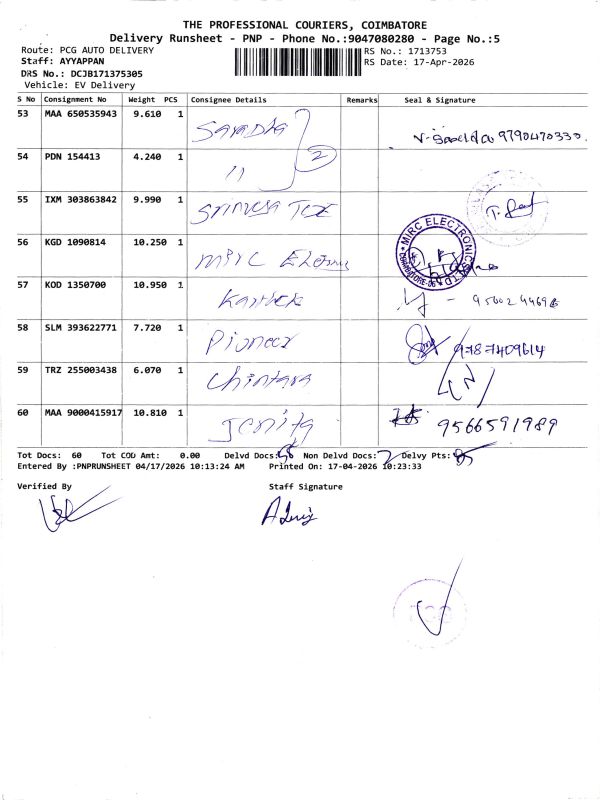 THE PROFESSIONAL COURIERS, COIMBATORE
Delivery Runsheet - PNP - Phone No.:9047080280 - Page No.:5
Route: PCG AUTO DELIVERY RS No.: 1713753
Staff: AYYAPPAN RS Date: 17-Apr-2026
DRS No.: DCJB171375305
Vehicle: EV Delivery
S No Consignment No Weight PCS Consignee Details Remarks Seal & Signature
53 MAA 650535943 9.610 1 Saradha 9790470330
54 PDN 154413 4.240 1 11 2
55 IXM 303863842 9.990 1
56 KGD 1090814 10.250 1 MIRC MIRC ELECTRONICS LTD
57 KOD 1350700 10.950 1 Karthik
58 SLM 393622771 7.720 1 Pioneer 9787409614
59 TRZ 255003438 6.070 1 Chintara
60 MAA 9000415917 10.810 1 Jenita 9566591989
Tot Docs: 60 Tot COD Amt: 0.00 Delvd Docs: Non Delvd Docs: 2 Delvy Pts:
Entered By :PNPRUNSHEET 04/17/2026 10:13:24 AM Printed On: 17-04-2026 10:23:33
Verified By Staff Signature